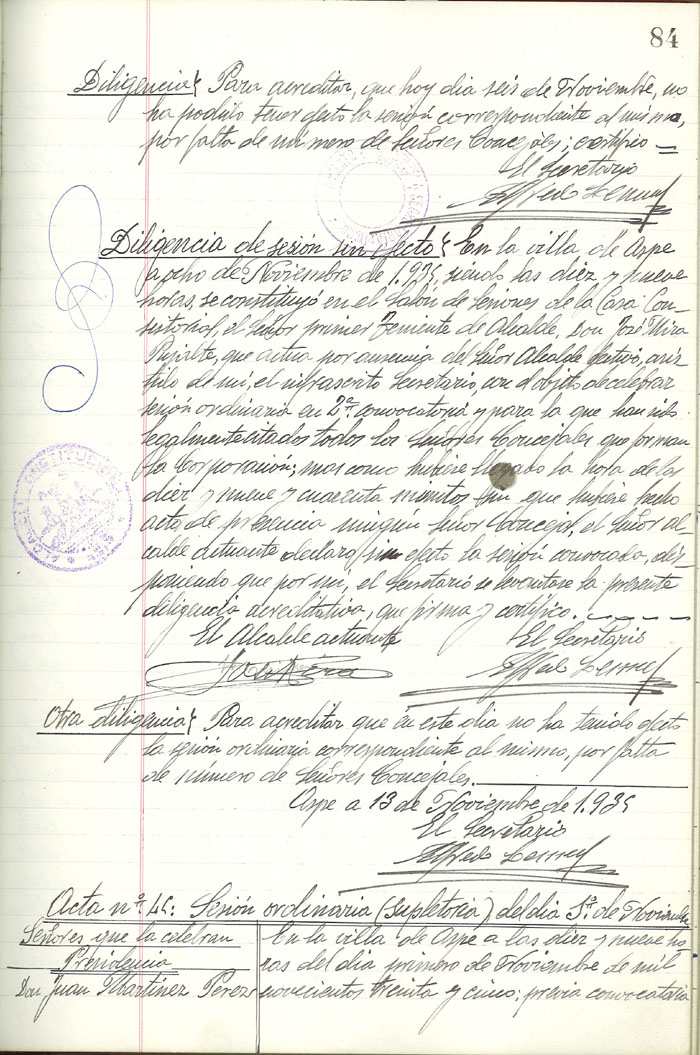 84
Diligencia} Para acreditar, que hoy dia seis de Noviembre, no
ha podido tener efecto la sesión correspondiente al mismo,
por falta de número de Señores Concejales; certifico =
El Secretario
Alfredo
Diligencia de sesión sin efecto} En la villa de Aspe
a ocho de Noviembre de 1.935, siendo las diez y nueve
horas, se constituyó en el Salón de Sesiones de la Casa Con-
sistorial, el Señor primer Teniente de Alcalde, Don José Mira
Pujalte, que actua por ausencia del Señor Alcalde efectivo, asis-
tido de mi, el infrascrito Secretario, con el objeto de celebrar
sesión ordinaria en 2ª convocatoria y para la que han sido
legalmente citados todos los Señores Concejales que forman
la Corporación; mas como hubiere llegado la hora de las
diez y nueve y cuarenta minutos sin que hubiere hecho
acto de presencia ningun Señor Concejal, el Señor al-
calde actuante declara sin efecto la sesión convocada, dis-
poniendo que por mi, el Secretario se levantase la presente
diligencia acreditativa, que firma y certifico.
El Alcalde actuante El Secretario
José Mira Alfredo
Otra diligencia} Para acreditar que en este dia no ha tenido efecto
la sesión ordinaria correspondiente al mismo, por falta
de número de Señores Concejales.
Aspe a 13 de Noviembre de 1.935
El Secretario
Alfredo
Acta nº 45: Sesión ordinaria (supletoria) del dia 1º de Noviembre
Señores que la celebran
Presidencia
Don Juan Martinez Perez
En la villa de Aspe a las diez y nueve ho-
ras del dia primero de Noviembre de mil
novecientos treinta y cinco: previa convocatoria